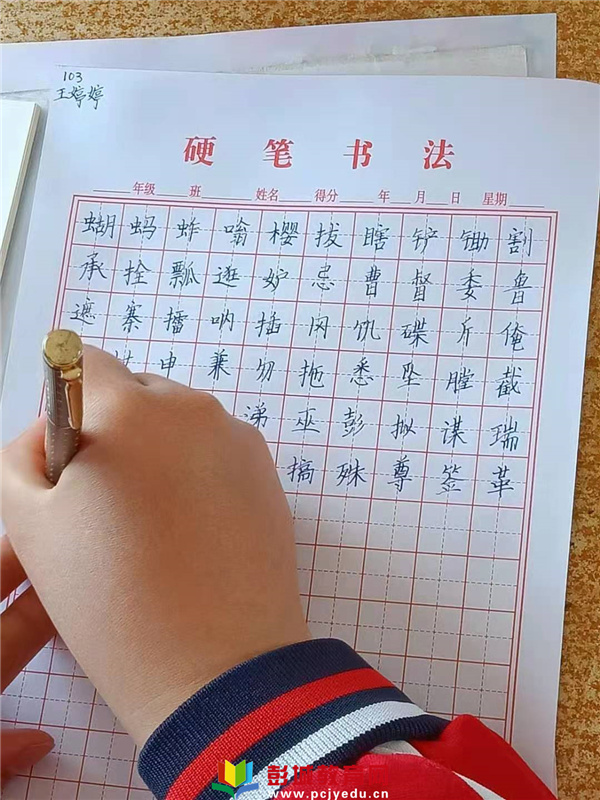 103
王婷婷
硬笔书法
年级 班 姓名 得分 年 月 日 星期
蝴蚂蚱嗡樱拔瞎铲锄割
承拴瓢逛妒忌曹督委鲁
遮寨擂呐插冈饥碟斤俺
申兼勿拖悉坠膛截
涕巫彭拟谋瑞
搞殊尊签革
彭城教育网
www.pcjyedu.cn